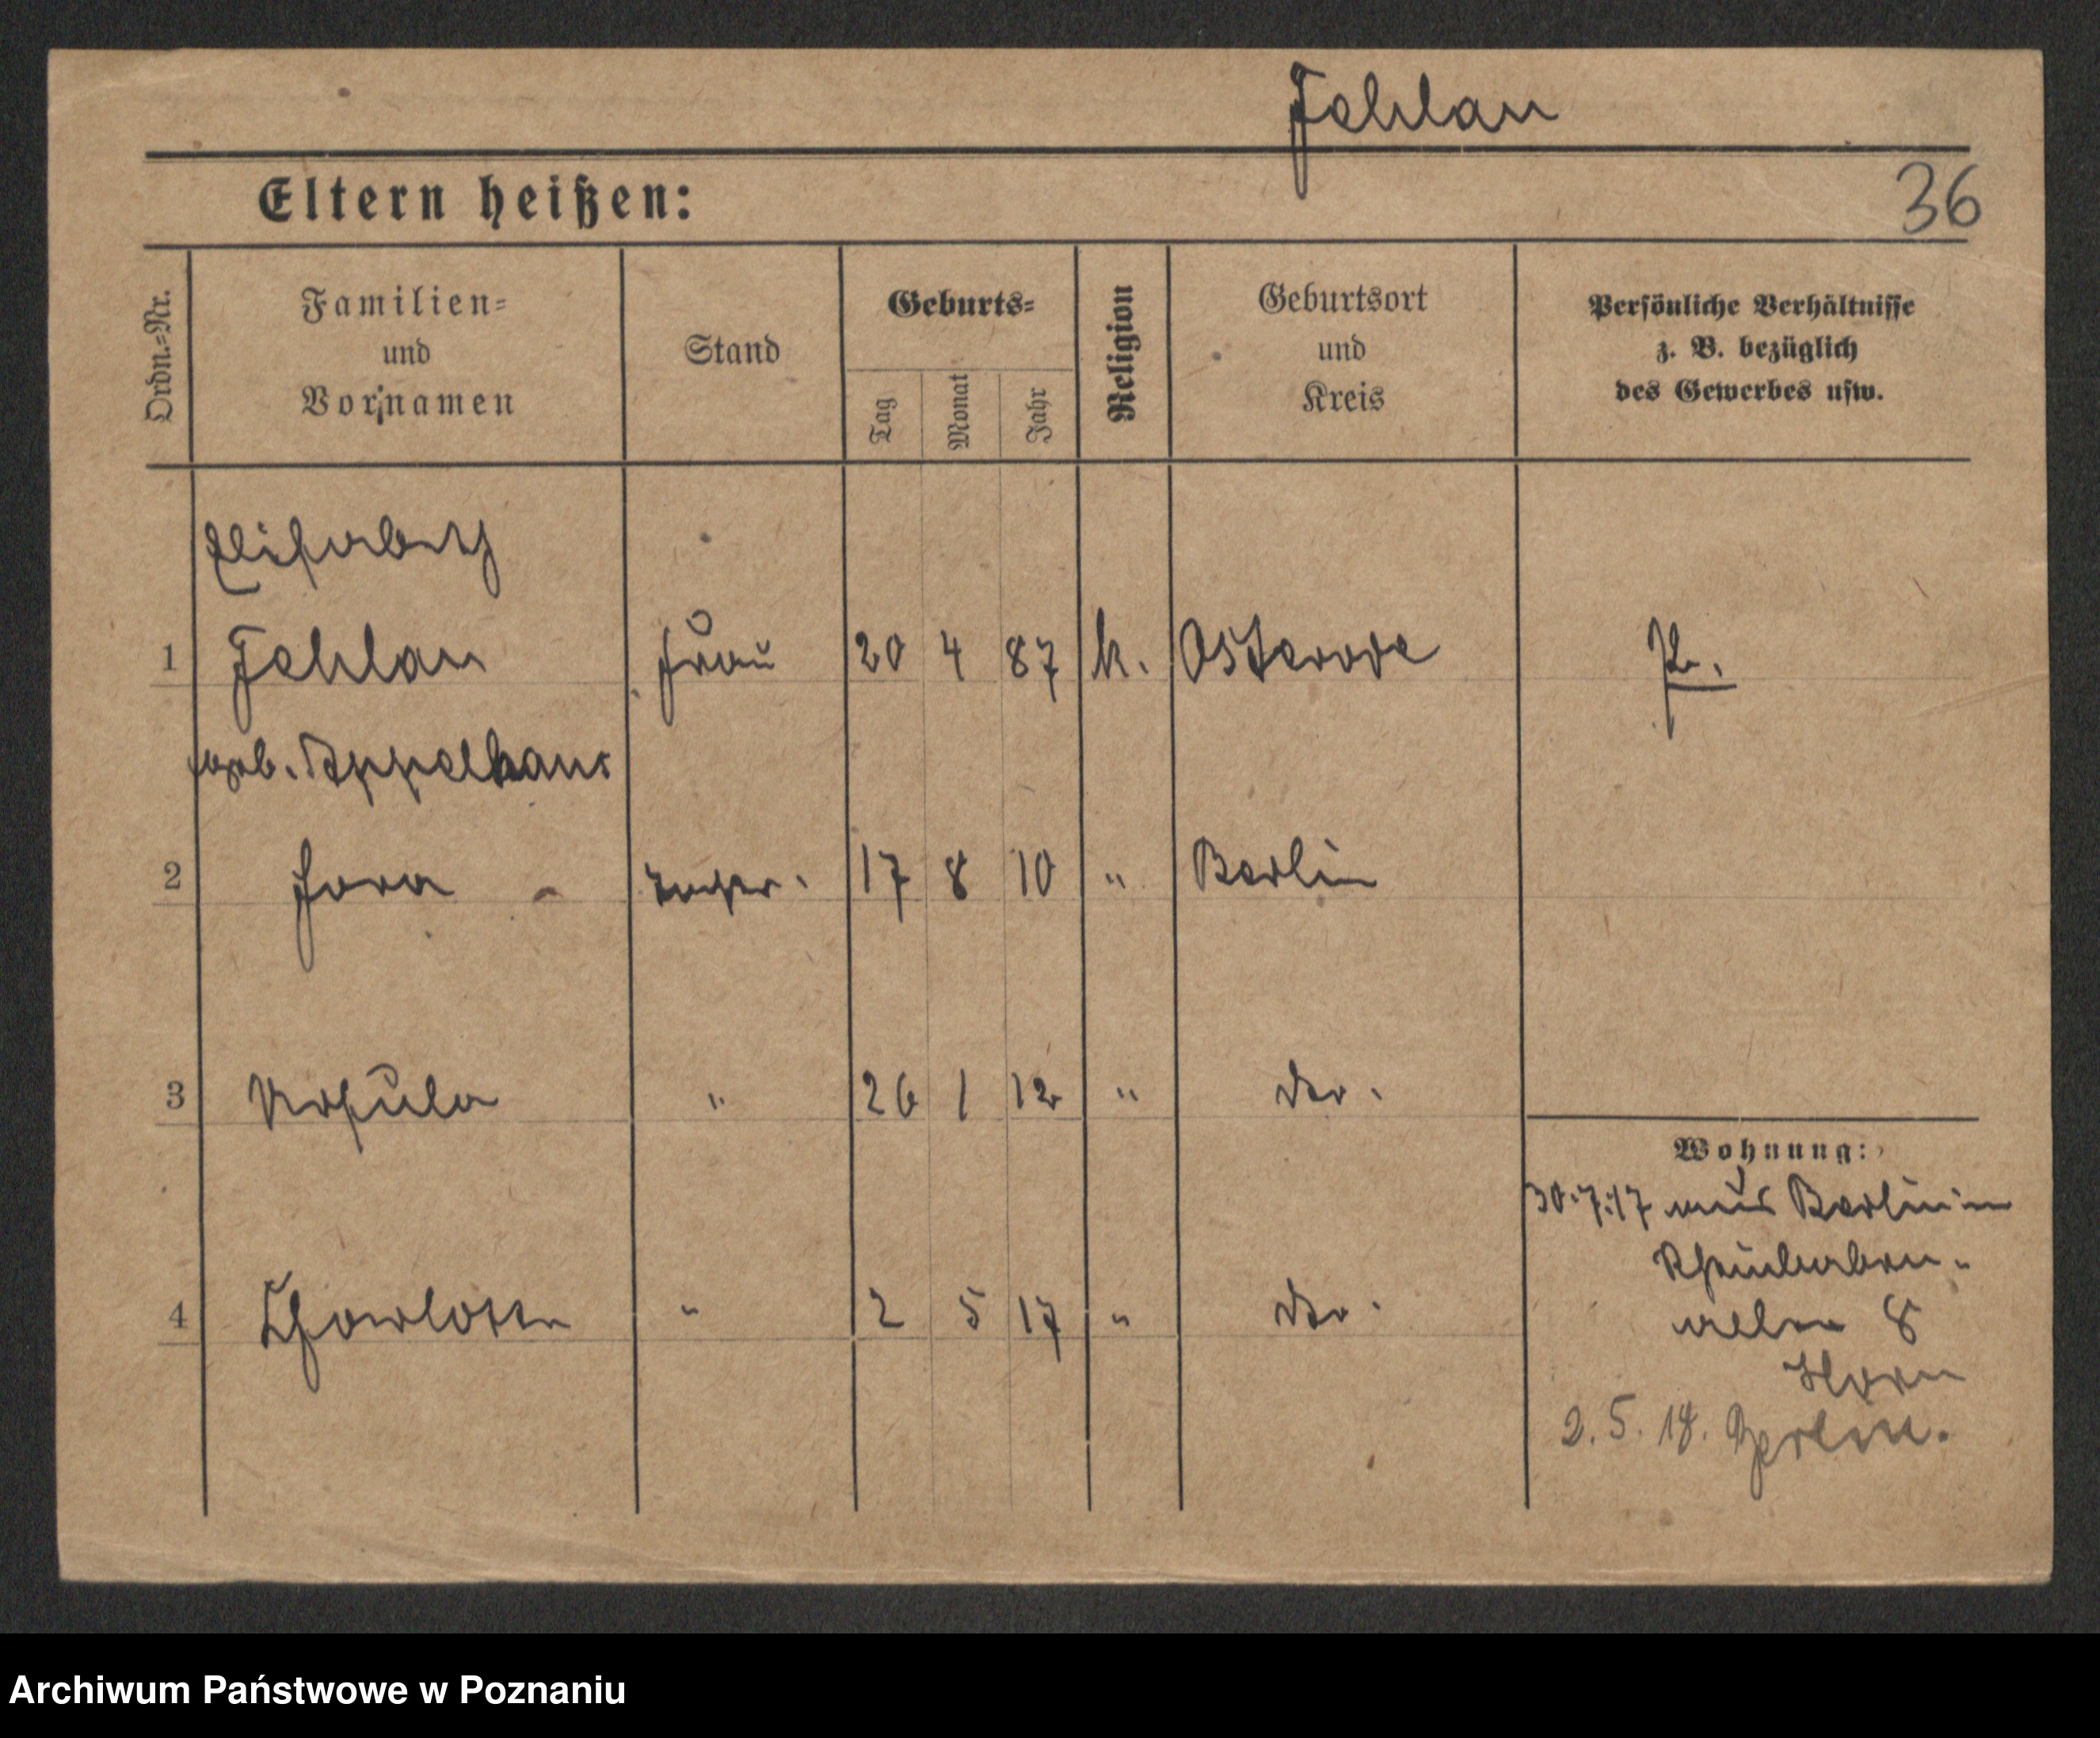 Fehlau
Eltern heißen:
36
Ordn.=Nr.
Familien=
und
Vornamen
Stand
Geburts=
Tag
Monat
Jahr
Religion
Geburtsort
und
Kreis
Persönliche Verhältnisse
z. B. bezüglich
des Gewerbes usw.
Elisabeth
1 Fehlau Frau 20 4 87 k. Osterode
geb. Appelhans
2 17 8 10 " Berlin
3 Ursula " 26 1 12 " do.
Wohnung:
30.7.17 aus Berlin in
Rheinbaben-
4 Charlotte " 2 5 17 " do.
allee 8
Horn
2. 5. 18. Berlin.
Archiwum Państwowe w Poznaniu